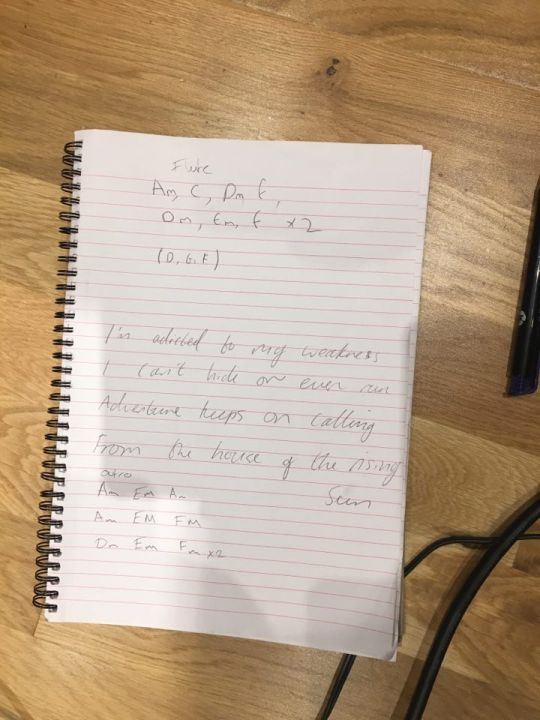 Flute
Am, C, Dm F,
Dm, Em, F x2
(D, E, F)
I'm adicted to my weakness
I can't hide or even run
Adventure keeps on calling
From the house of the rising
Sun
outro
Am Em Am
Am EM FM
Dm Em Fm x2